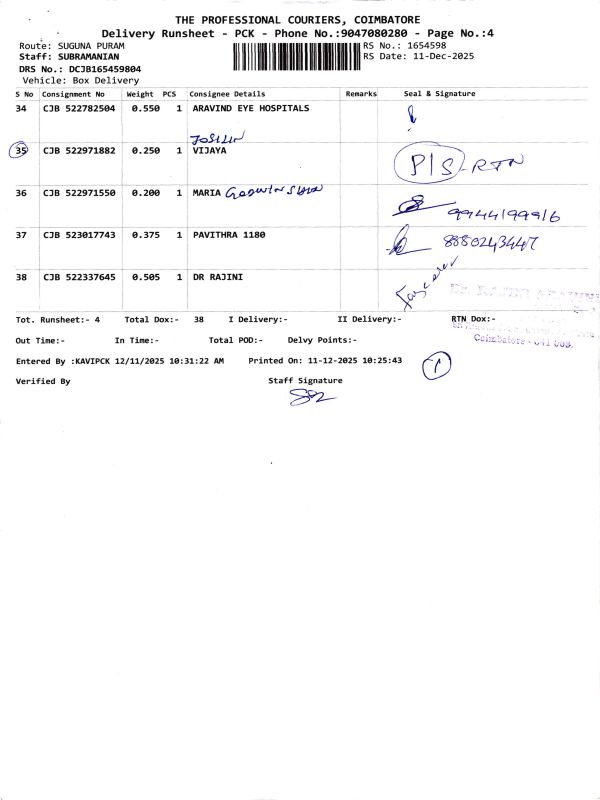 THE PROFESSIONAL COURIERS, COIMBATORE
Delivery Runsheet - PCK - Phone No.:9047080280 - Page No.:4
Route: SUGUNA PURAM RS No.: 1654598
Staff: SUBRAMANIAN RS Date: 11-Dec-2025
DRS No.: DCJB165459804
Vehicle: Box Delivery
S No Consignment No Weight PCS Consignee Details Remarks Seal & Signature
34 CJB 522782504 0.550 1 ARAVIND EYE HOSPITALS
35 CJB 522971882 0.250 1 VIJAYA P/S-RTN
36 CJB 522971550 0.200 1 MARIA
9944199916
37 CJB 523017743 0.375 1 PAVITHRA 1180 8880243447
38 CJB 522337645 0.505 1 DR RAJINI
Tot. Runsheet:- 4 Total Dox:- 38 I Delivery:- II Delivery:- RTN Dox:-
Out Time:- In Time:- Total POD:- Delvy Points:-
Coimbatore - 641 008.
Entered By :KAVIPCK 12/11/2025 10:31:22 AM Printed On: 11-12-2025 10:25:43
1
Verified By Staff Signature